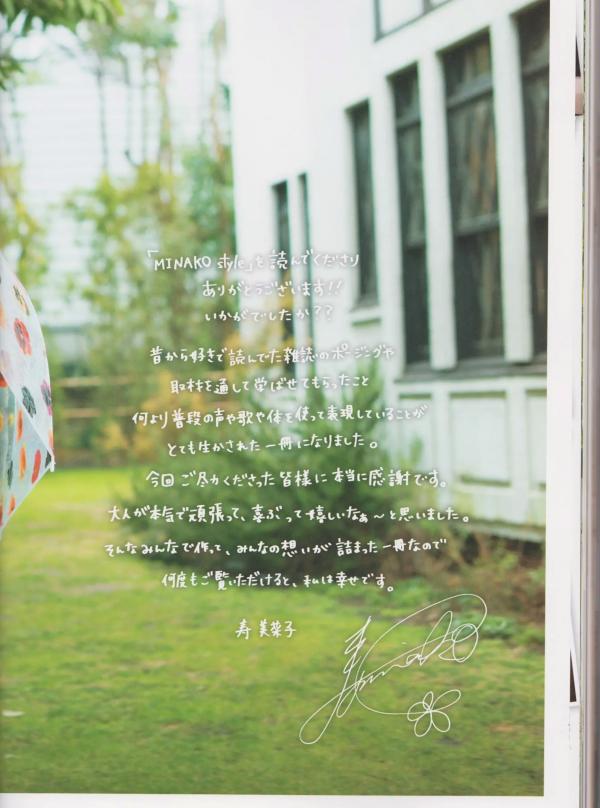 「MINAKO style」を読んでくださり
ありがとうございます!!
いかがでしたか??
昔から好きで読んでた雑誌のポージングや
取材を通して学ばせてもらったこと
何より普段の声や歌や体を使って表現していることが
とても生かされた一冊になりました。
今回ご尽力くださった皆様に本当に感謝です。
大人が本気で頑張って、喜ぶって嬉しいなぁ〜と思いました。
そんなみんなで作って、みんなの想いが詰まった一冊なので
何度もご覧いただけると、私は幸せです。
寿 美菜子